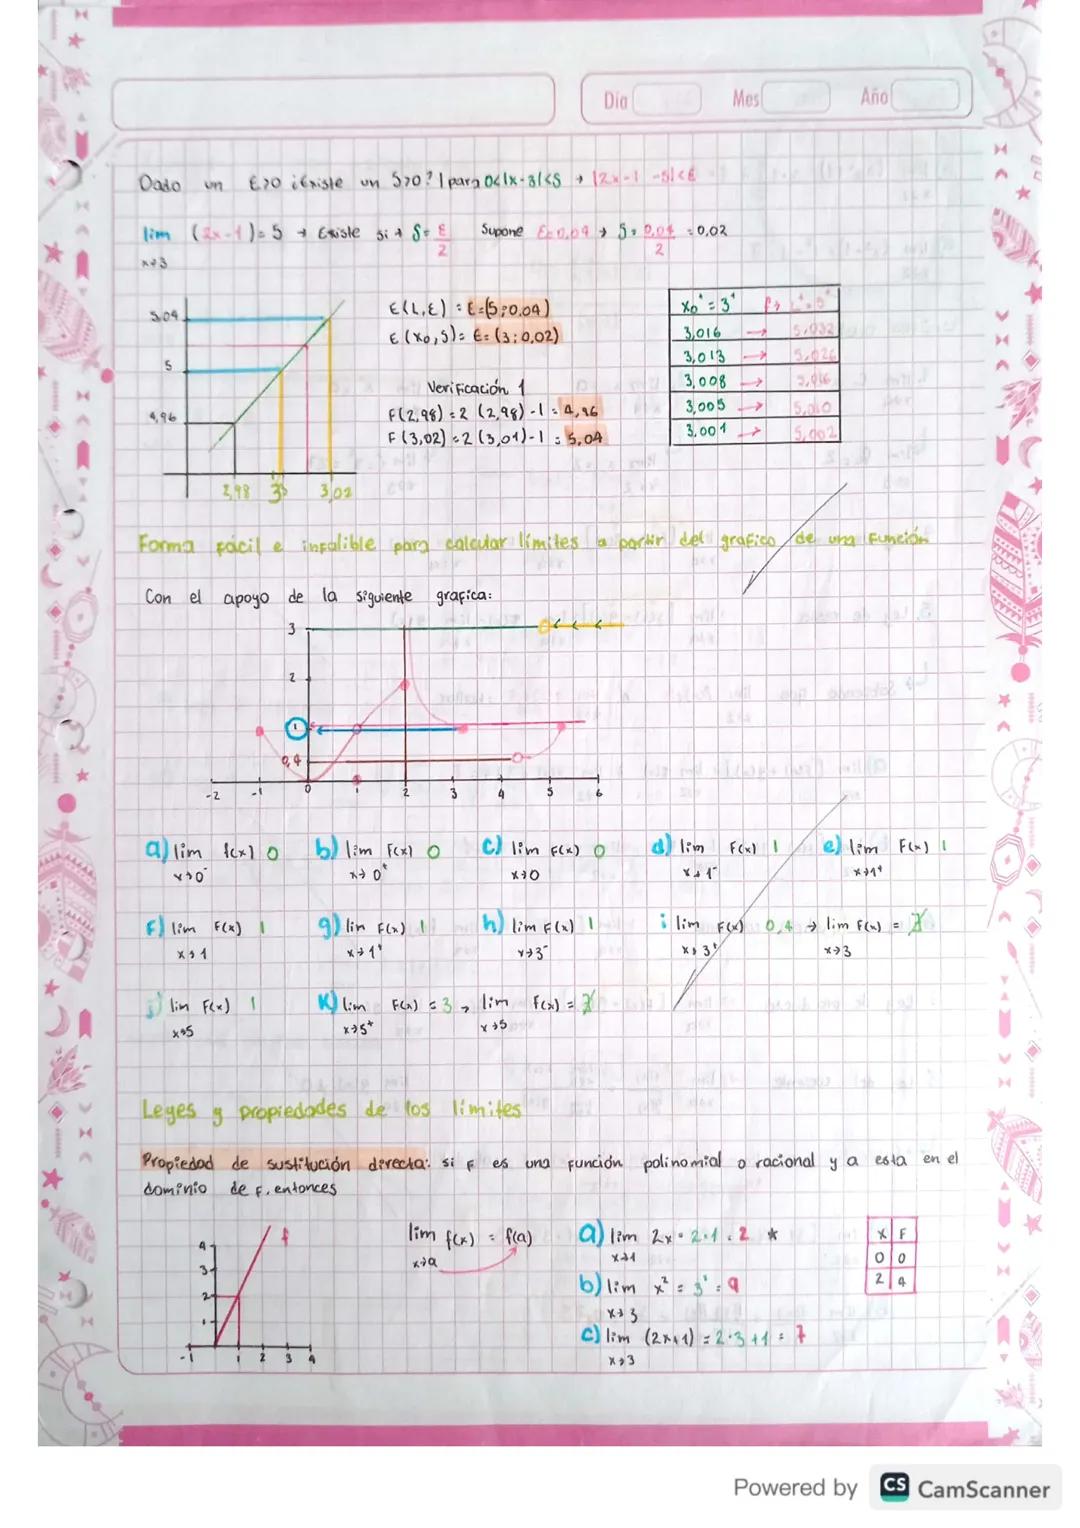 Día Mes Año
Dado un ε>0 ¿Existe un S>0? | para 0<|x-3|<S → |2x-1 -5|<ε
lim (2x-1)=5 → Existe si → S= ε/2 Supone ε=0,04 → S= 0,04/2 = 0,02
x→3
5,04
5
4,96
2,98 3 3,02
E(L,ε) = E=(5;0,04)
E(x₀,S)= E=(3;0,02)
Verificación 1
F(2,98)=2(2,98)-1=4,96
F(3,02)=2(3,01)-1=5,04
x₀⁺=3⁺ f→L⁺=5⁺
3,016 → 5,032
3,013 → 5,026
3,008 → 5,016
3,005 → 5,010
3,001 → 5,002
Forma fácil e infalible para calcular límites a partir del grafico de una Función
Con el apoyo de la siguiente grafica:
3
2
1
0,4
-2 -1 0 1 2 3 4 5 6
a) lim f(x) 0 b) lim F(x) 0 c) lim F(x) 0 d) lim F(x) 1 e) lim F(x) 1
x→0⁻ x→0⁺ x→0 x→1⁻ x→1⁺
F) lim F(x) 1 g) lim F(x) 1 h) lim F(x) 1 i lim F(x) 0,4 → lim F(x) = ∄
x→1 x→1⁺ x→3⁻ x→3⁺ x→3
j) lim F(x) 1 K) lim F(x) = 3 → lim f(x) = ∄
x→5 x→5⁺ x→5
Leyes y propiedades de los límites
Propiedad de sustitución directa: si F es una función polinomial o racional y a esta en el
dominio de F, entonces
4
3
2
1
-1 1 2 3 4
f
lim f(x) = f(a)
x→a
a) lim 2x = 2·1 = 2 *
x→1
b) lim x² = 3² = 9
x→3
c) lim (2x+1) = 2·3+1 = 7
x→3
X F
0 0
2 4
Powered by CS CamScanner